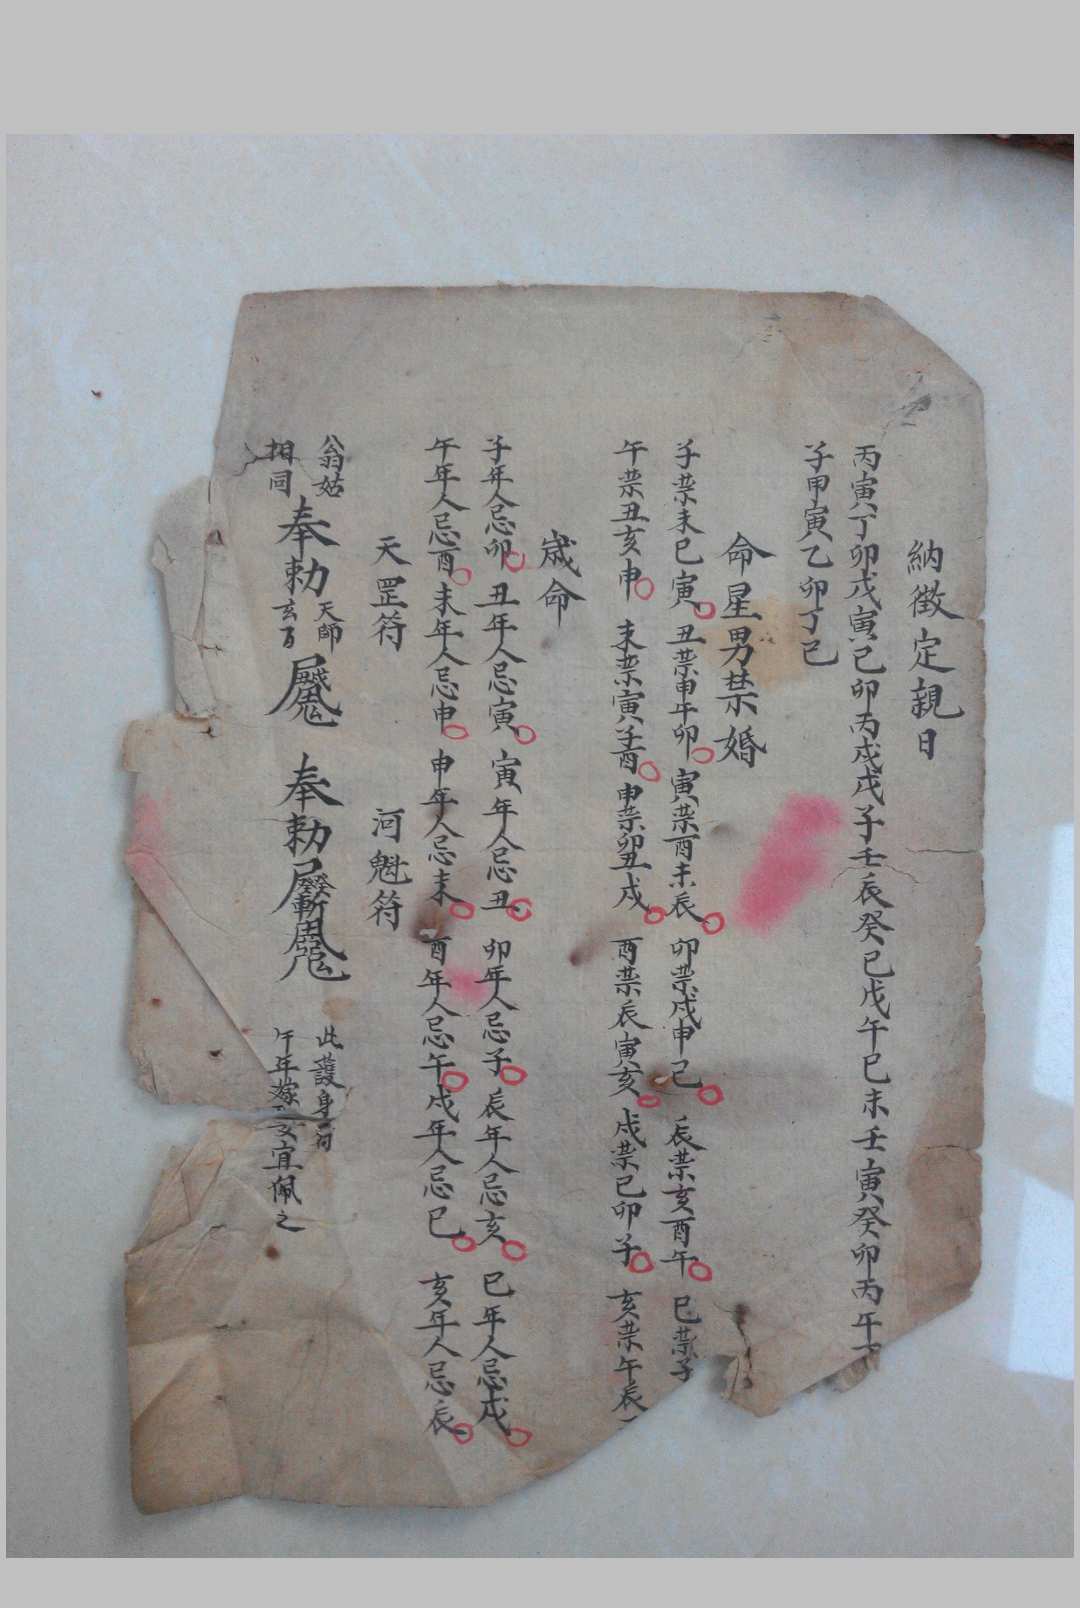 納徵定親日
丙寅丁卯戊寅己卯丙戌戊子壬辰癸巳戊午己未壬寅癸卯丙午
子甲寅乙卯丁巳
命星男禁婚
子禁未巳寅 丑禁申午卯 寅禁酉未辰 卯禁戌申巳 辰禁亥酉午 巳禁子
午禁丑亥申 未禁寅子酉 申禁卯丑戌 酉禁辰寅亥 戌禁巳卯子 亥禁午辰
歲命
子年人忌卯 丑年人忌寅 寅年人忌丑 卯年人忌子 辰年人忌亥 巳年人忌戌
午年人忌酉 未年人忌申 申年人忌未 酉年人忌午 戌年人忌巳 亥年人忌辰
天罡符 河魁符
翁姑
相同
奉勅
天師
奉勅
此護身符
午年嫁娶宜佩之